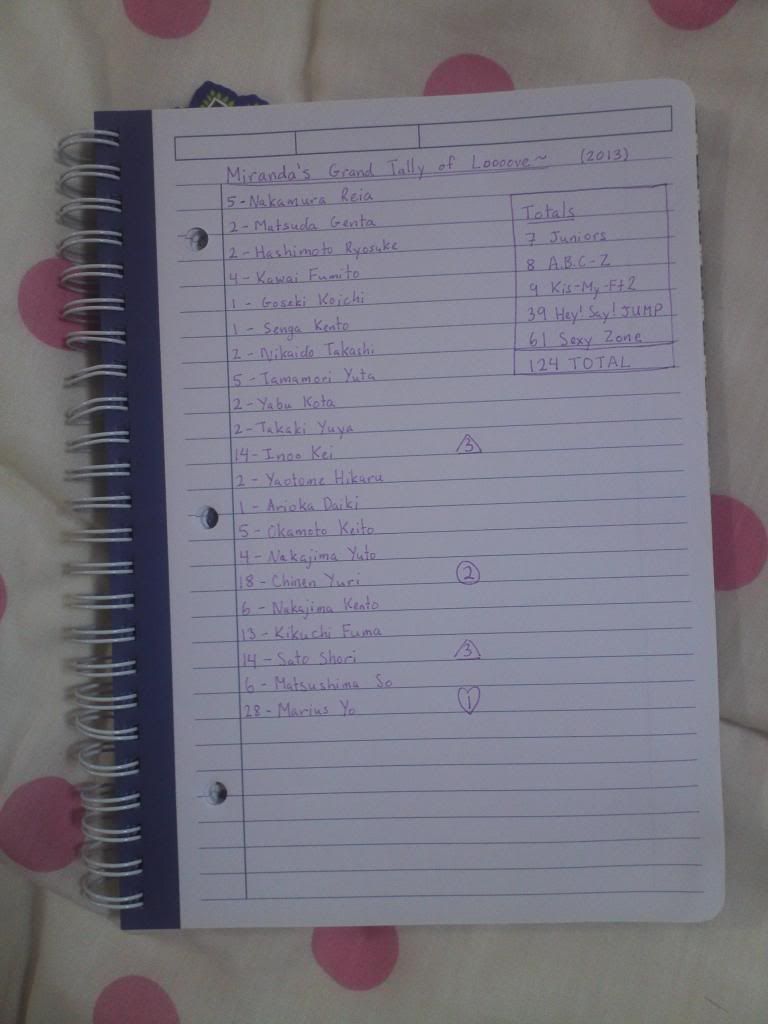 Miranda's Grand Tally of Loooove~ (2013)
5-Nakamura Reia
2-Matsuda Genta
2-Hashimoto Ryosuke
4-Kawai Fumito
1-Goseki Koichi
1-Senga Kento
2-Nikaido Takashi
5-Tamamori Yuta
2-Yabu Kota
2-Takaki Yuya
14-Inoo Kei 3
2-Yaotome Hikaru
1-Arioka Daiki
5-Okamoto Keito
4-Nakajima Yuto
18-Chinen Yuri 2
6-Nakajima Kento
13-Kikuchi Fuma
14-Sato Shori 3
6-Matsushima So
28-Marius Yo 1
Totals
7 Juniors
8 A.B.C-Z
9 Kis-My-Ft2
39 Hey! Say! JUMP
61 Sexy Zone
124 TOTAL